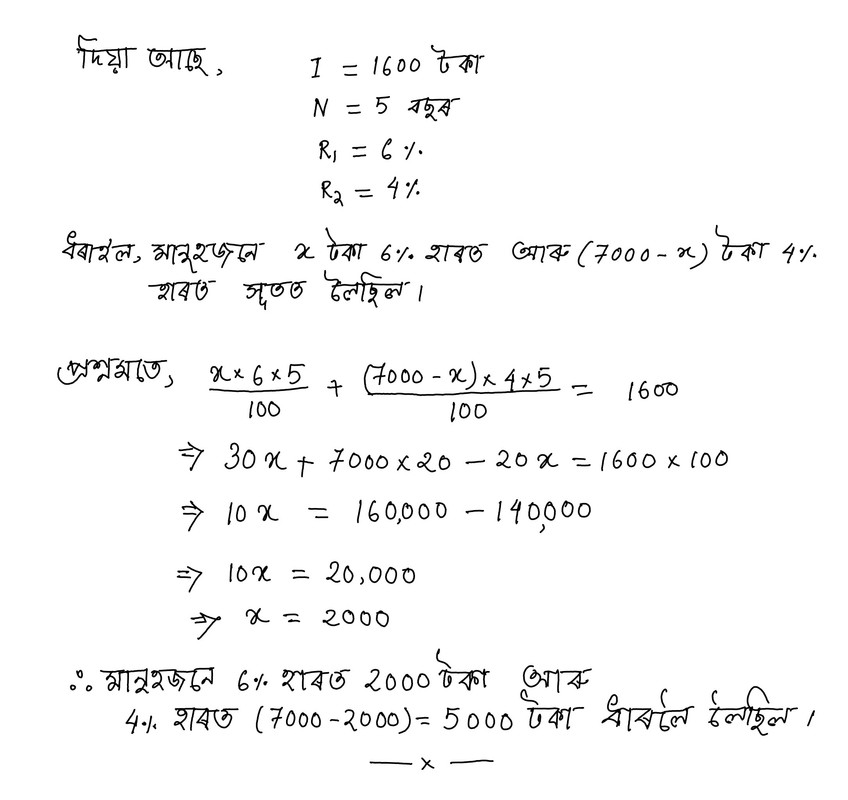 দিয়া আছে,    I = 1600 টকা
N = 5 বছৰ
R₁ = 6%
R₂ = 4%
ধৰাহ'ল, মানুহজনে x টকা 6% হাৰত আৰু (7000 - x) টকা 4%
হাৰত সুতত লৈছিল।
প্ৰশ্নমতে, (x × 6 × 5)/100 + ((7000 - x) × 4 × 5)/100 = 1600
⇒ 30x + 7000 × 20 - 20x = 1600 × 100
⇒ 10x = 160,000 - 140,000
⇒ 10x = 20,000
⇒ x = 2000
∴ মানুহজনে 6% হাৰত 2000 টকা আৰু
4% হাৰত (7000 - 2000) = 5000 টকা ধাৰলৈ লৈছিল।
— x —